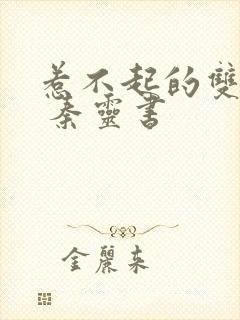 惹不起的雙
秦靈書
金麗來